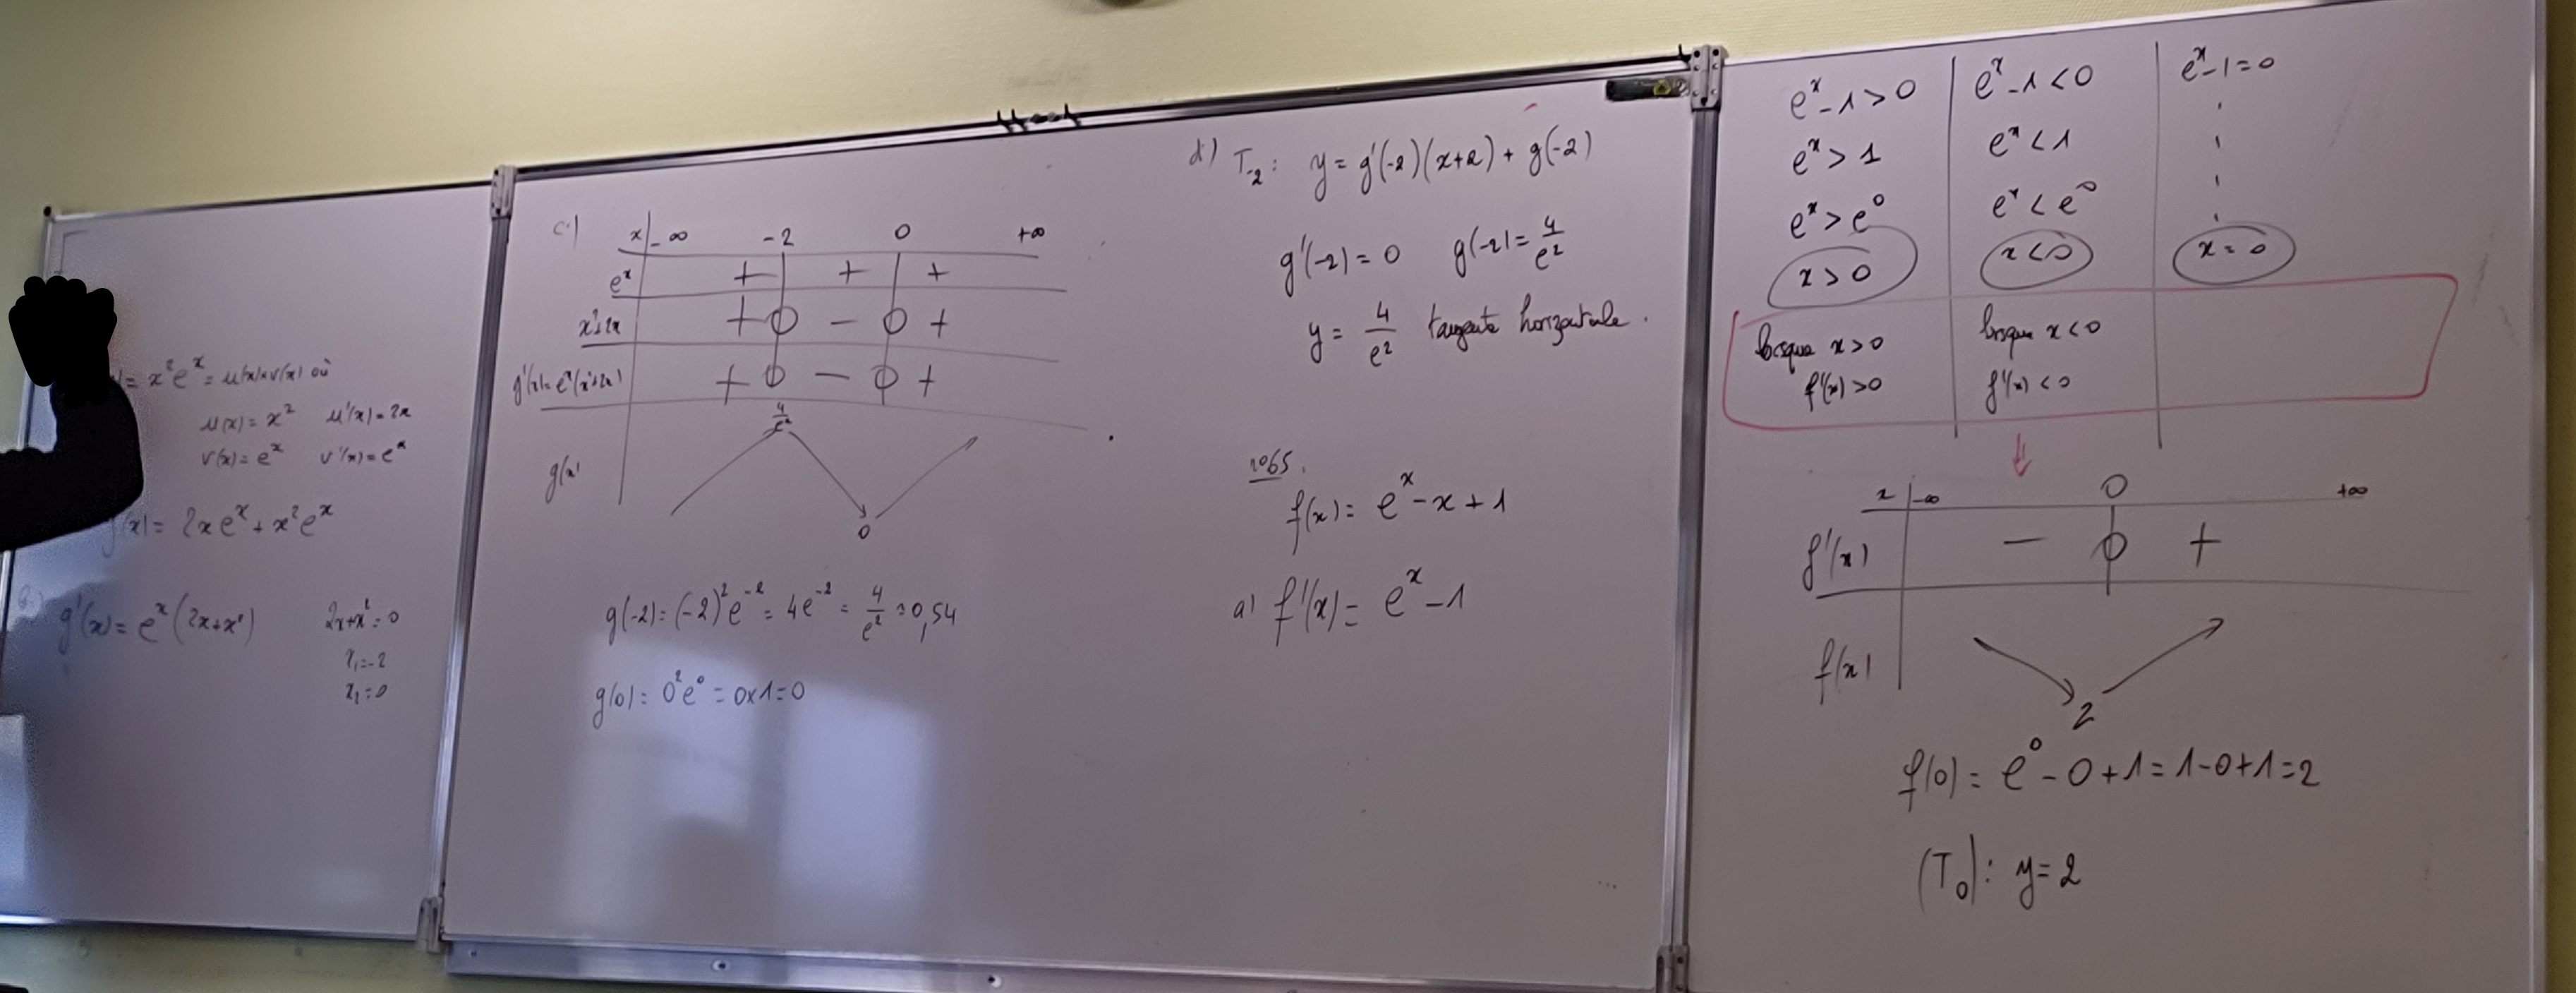 = x²eˣ = u(x)×v(x) où
u(x) = x² u'(x) = 2x
v(x) = eˣ v'(x) = eˣ
(x) = 2x eˣ + x²eˣ
g'(x) = eˣ(2x+x²) 2x+x² = 0
x₁ = -2
x₂ = 0
c.)
x -∞ -2 0 +∞
eˣ + + +
x²+2x + 0 - 0 +
g'(x) = eˣ(x²+2x) + 0 - 0 +
4/e²
g(x)
0
g(-2) = (-2)²e⁻² = 4e⁻² = 4/e² ≈ 0,54
g(0) = 0²e⁰ = 0×1 = 0
d.) T₋₂ : y = g'(-2)(x+2) + g(-2)
g'(-2) = 0 g(-2) = 4/e²
y = 4/e² tangente horizontale.
n°65.
f(x) = eˣ - x + 1
a) f'(x) = eˣ - 1
eˣ - 1 > 0 eˣ - 1 < 0 eˣ - 1 = 0
eˣ > 1 eˣ < 1
eˣ > e⁰ eˣ < e⁰
x > 0 x < 0 x = 0
lorsque x > 0 lorsque x < 0
f'(x) > 0 f'(x) < 0
x -∞ 0 +∞
f'(x) - 0 +
f(x)
2
f(0) = e⁰ - 0 + 1 = 1 - 0 + 1 = 2
(T₀) : y = 2